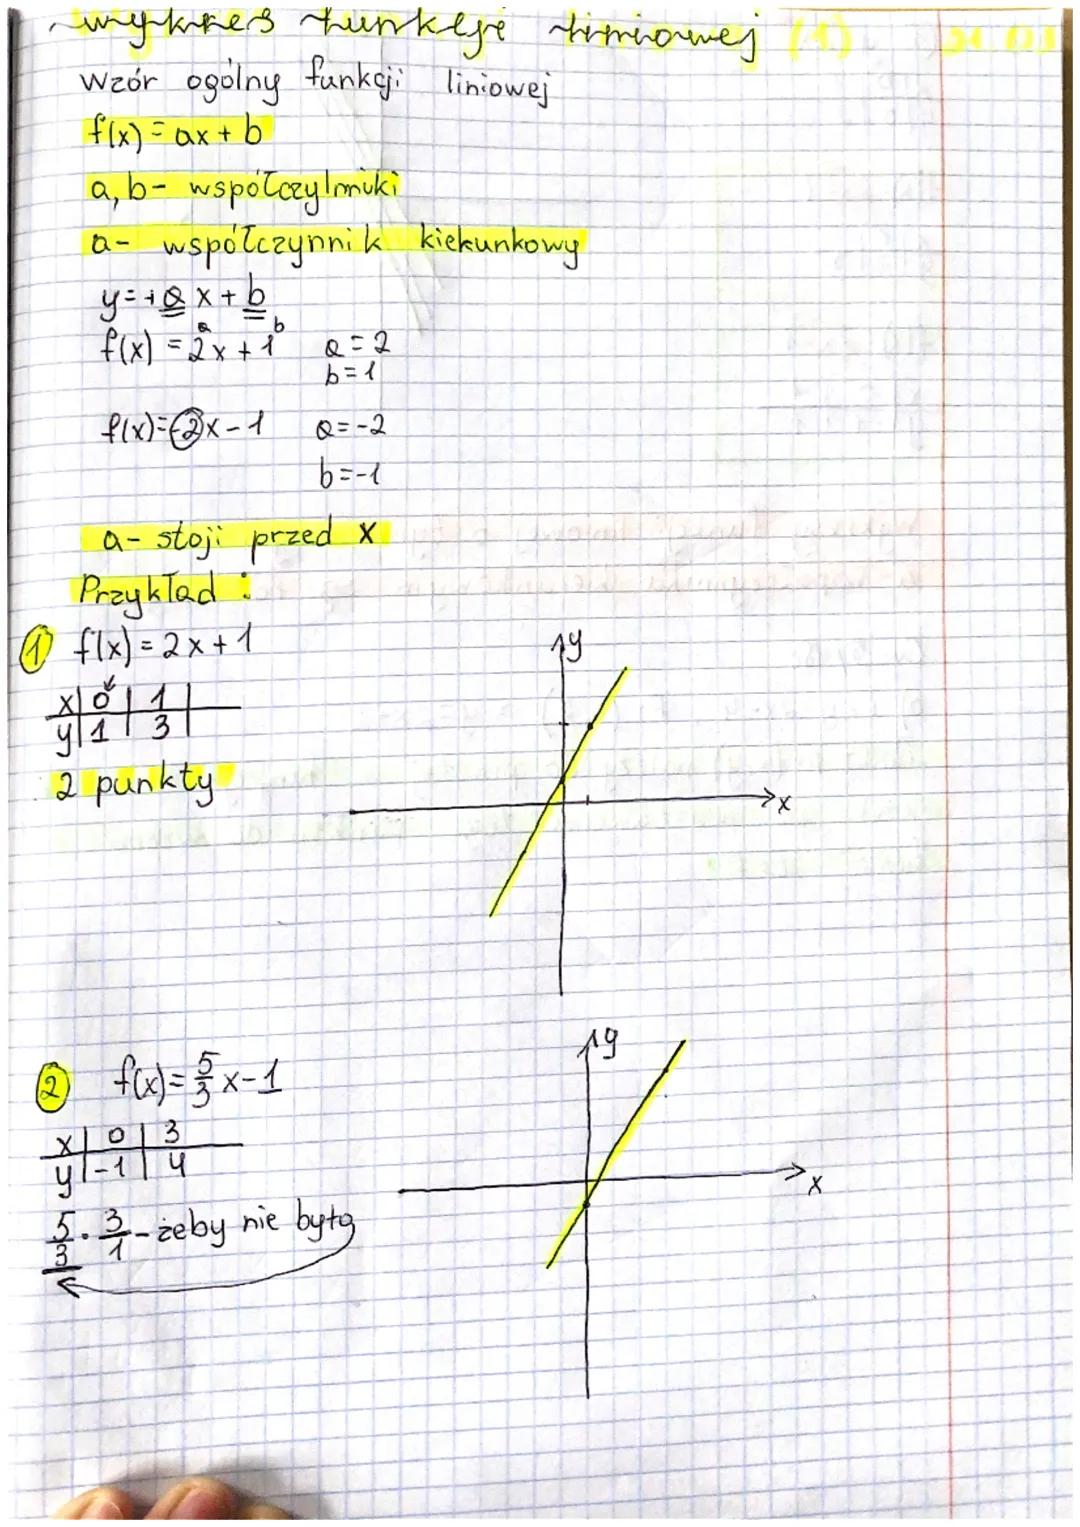 wykres funkcji liniowej
Wzór ogólny funkcji liniowej
f(x) = ax + b
a, b - współczylnniki
a - współczynnik kiekunkowy
y = +a x + b
a b
f(x) = 2x + 1 a = 2
b = 1
f(x) = -2x - 1 a = -2
b = -1
a - stoji przed x
Przykład :
1 f(x) = 2x + 1
x | 0 | 1 |
y | 1 | 3 |
2 punkty
y
x
2 f(x) = 5/3 x - 1
x | 0 | 3
y | -1 | 4
5/3 · 3/1 - żeby nie było
y
x